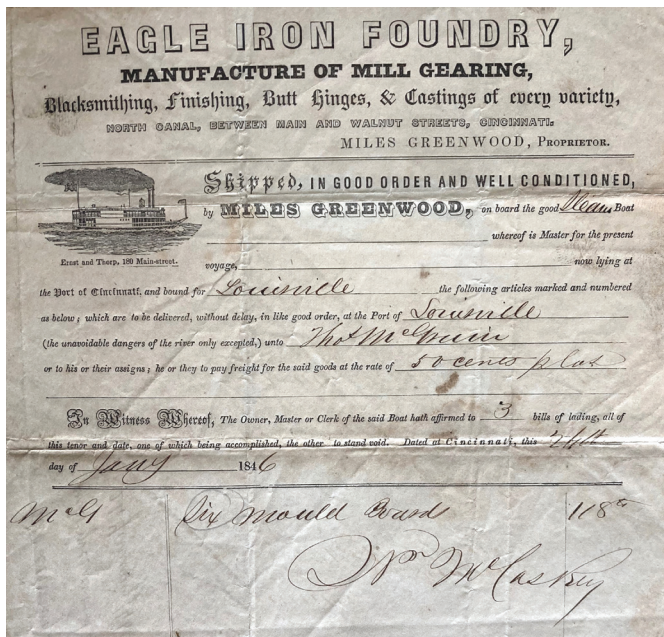 EAGLE IRON FOUNDRY,
MANUFACTURE OF MILL GEARING,
Blacksmithing, Finishing, Butt Hinges, & Castings of every variety,
NORTH CANAL, BETWEEN MAIN AND WALNUT STREETS, CINCINNATI.
MILES GREENWOOD, PROPRIETOR.
Shipped, IN GOOD ORDER AND WELL CONDITIONED,
by MILES GREENWOOD, on board the good Steam Boat
whereof is Master for the present
Ernst and Thorp, 180 Main-street.
voyage, now lying at
the Port of Cincinnati, and bound for Louisville the following articles marked and numbered
as below; which are to be delivered, without delay, in like good order, at the Port of Louisville
(the unavoidable dangers of the river only excepted,) unto Thos
or to his or their assigns; he or they to pay freight for the said goods at the rate of 50 cents
In Witness Whereof, The Owner, Master or Clerk of the said Boat hath affirmed to 3 bills of lading, all of
this tenor and date, one of which being accomplished, the other to stand void. Dated at Cincinnati, this
day of Jany 1846
McG Six Mould Boards 118
Wm McCaskey